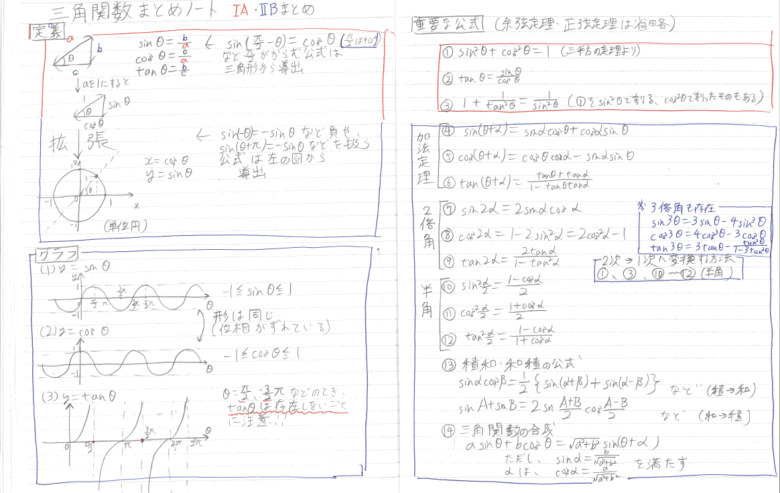 三角関数まとめノート IA・IIBまとめ
定義
a
b
c
θ
sinθ = b/a
cosθ = c/a
tanθ = b/c
← sin(π/2-θ) = cosθ
など π/2 がからむ公式は
三角形から導出
a=1にすると
1
sinθ
θ
cosθ
拡張
← sin(-θ) = -sinθ など負や、
sin(θ+π) = -sinθ などを扱う
公式は左の図から
導出
x = cosθ
y = sinθ
(単位円)
グラフ
(1) y = sinθ
-1 ≤ sinθ ≤ 1
形は同じ
(位相がずれている)
(2) y = cosθ
-1 ≤ cosθ ≤ 1
(3) y = tanθ
θ = π/2, 3/2π などのとき、
tanθは存在しないこと
に注意!!
重要な公式 (余弦定理・正弦定理は省略)
① sin²θ + cos²θ = 1 (三平方の定理より)
② tanθ = sinθ/cosθ
③ 1 + 1/tan²θ = 1/sin²θ (①をsin²θで割る、cos²θで割ったものもある)
加法定理
④ sin(θ+α) = sinαcosθ + cosαsinθ
⑤ cos(θ+α) = cosθcosα - sinαsinθ
⑥ tan(θ+α) = tanθ+tanα/1-tanθtanα
2倍角
⑦ sin2α = 2sinαcosα
⑧ cos2α = 1-2sin²α = 2cos²α-1
⑨ tan2α = 2tanα/1-tan²α
※ 3倍角も存在
sin3θ = 3sinθ - 4sin³θ
cos3θ = 4cos³θ - 3cosθ
2次→1次へ変換する方法
①、③、⑩〜⑫(半角)
半角
⑩ sin²α/2 = 1-cosα/2
⑪ cos²α/2 = 1+cosα/2
⑫ tan²α/2 = 1-cosα/1+cosα
⑬ 積和・和積の公式
sinαcosβ = 1/2{sin(α+β) + sin(α-β)} など (積→和)
sinA+sinB = 2sin A+B/2 cos A-B/2 など (和→積)
⑭ 三角関数の合成
asinθ + bcosθ = √a²+b² sin(θ+α)
ただし、 sinα = b/√a²+b²
αは、 cosα = a/√a²+b² を満たす